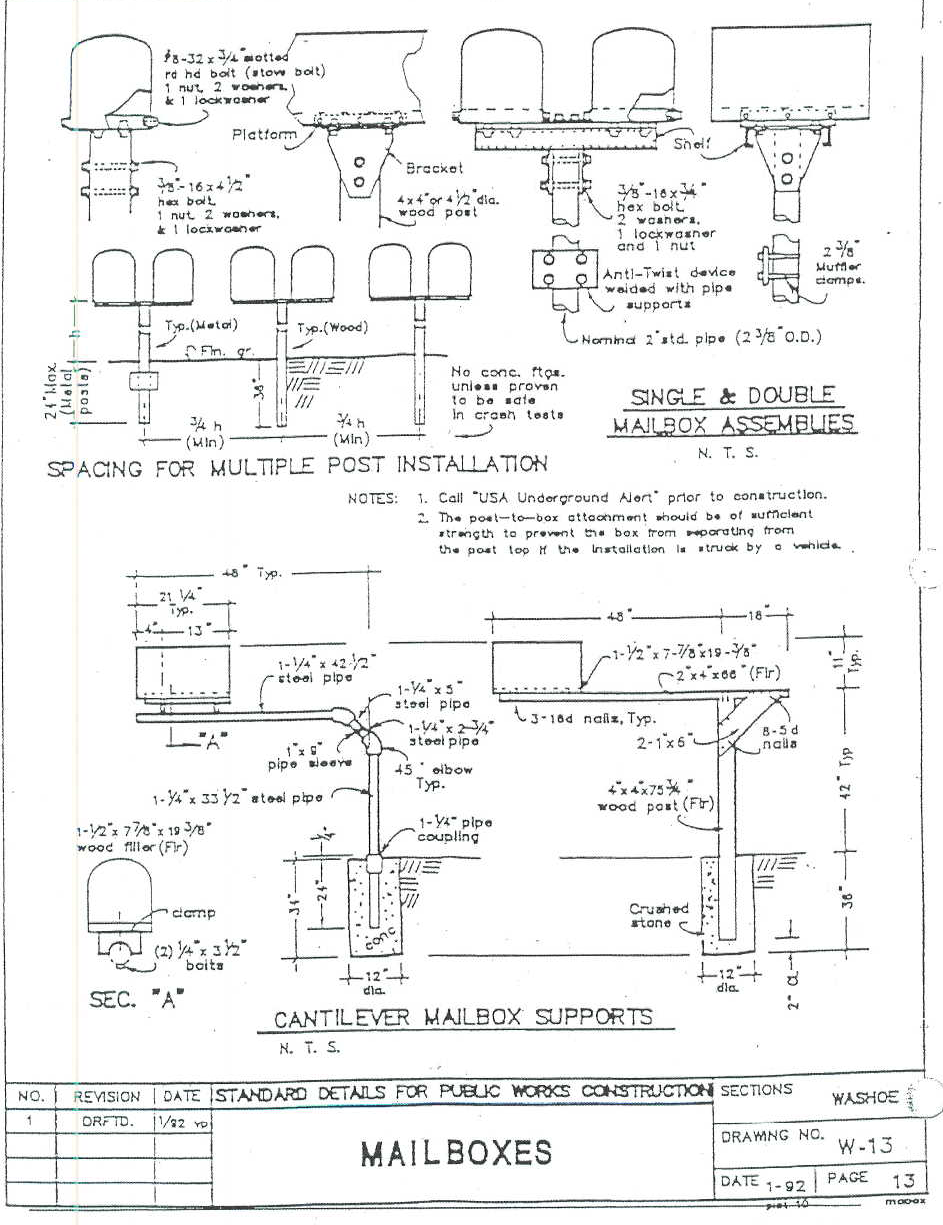 8-32 x 3/4" slotted
rd hd bolt (stove bolt)
1 nut, 2 washers,
& 1 lockwasher
Platform
Bracket
3/8"-16 x 4 1/2"
hex bolt
1 nut, 2 washers,
& 1 lockwasher
4x4" or 4 1/2" dia.
wood post
Shelf
3/8"-16 x 3/4"
hex bolt
2 washers,
1 lockwasher
and 1 nut
Anti-Twist device
welded with pipe
supports
2 3/8"
Muffler
clamps.
Nominal 2" std. pipe (2 3/8" O.D.)
SINGLE & DOUBLE
MAILBOX ASSEMBLIES
N. T. S.
Typ.(Metal)
Typ.(Wood)
Fin. gr.
h
24" Max.
(Metal
posts)
36"
No conc. ftgs.
unless proven
to be safe
in crash tests
3/4 h
(Min)
3/4 h
(Min)
SPACING FOR MULTIPLE POST INSTALLATION
NOTES: 1. Call "USA Underground Alert" prior to construction.
2. The post-to-box attachment should be of sufficient
strength to prevent the box from separating from
the post top if the installation is struck by a vehicle.
48" Typ.
21 1/4"
Typ.
4"
13"
1-1/4" x 42-1/2"
steel pipe
1-1/4" x 5"
steel pipe
1-1/4" x 2-3/4"
steel pipe
"A"
1" x 9"
pipe sleeve
45° elbow
Typ.
1-1/4" x 33 1/2" steel pipe
1-1/4" pipe
coupling
1/4"
34"
24"
conc
12"
dia.
1-1/2" x 7 7/8" x 19 3/8"
wood filler (Fir)
clamp
(2) 1/4" x 3 1/2"
bolts
SEC. "A"
48"
18"
1-1/2" x 7-7/8" x 19-3/8"
2" x 4" x 66" (Fir)
11"
Typ.
3-16d nails, Typ.
2-1"x6"
8-5d
nails
42" Typ
4"x4"x75 3/4"
wood post (Fir)
Crushed
stone
36"
12"
dia.
2" CL
CANTILEVER MAILBOX SUPPORTS
N. T. S.
NO. REVISION DATE
1 DRFTD. 1/92
STANDARD DETAILS FOR PUBLIC WORKS CONSTRUCTION
MAILBOXES
SECTIONS WASHOE
DRAWING NO. W-13
DATE 1-92 PAGE 13